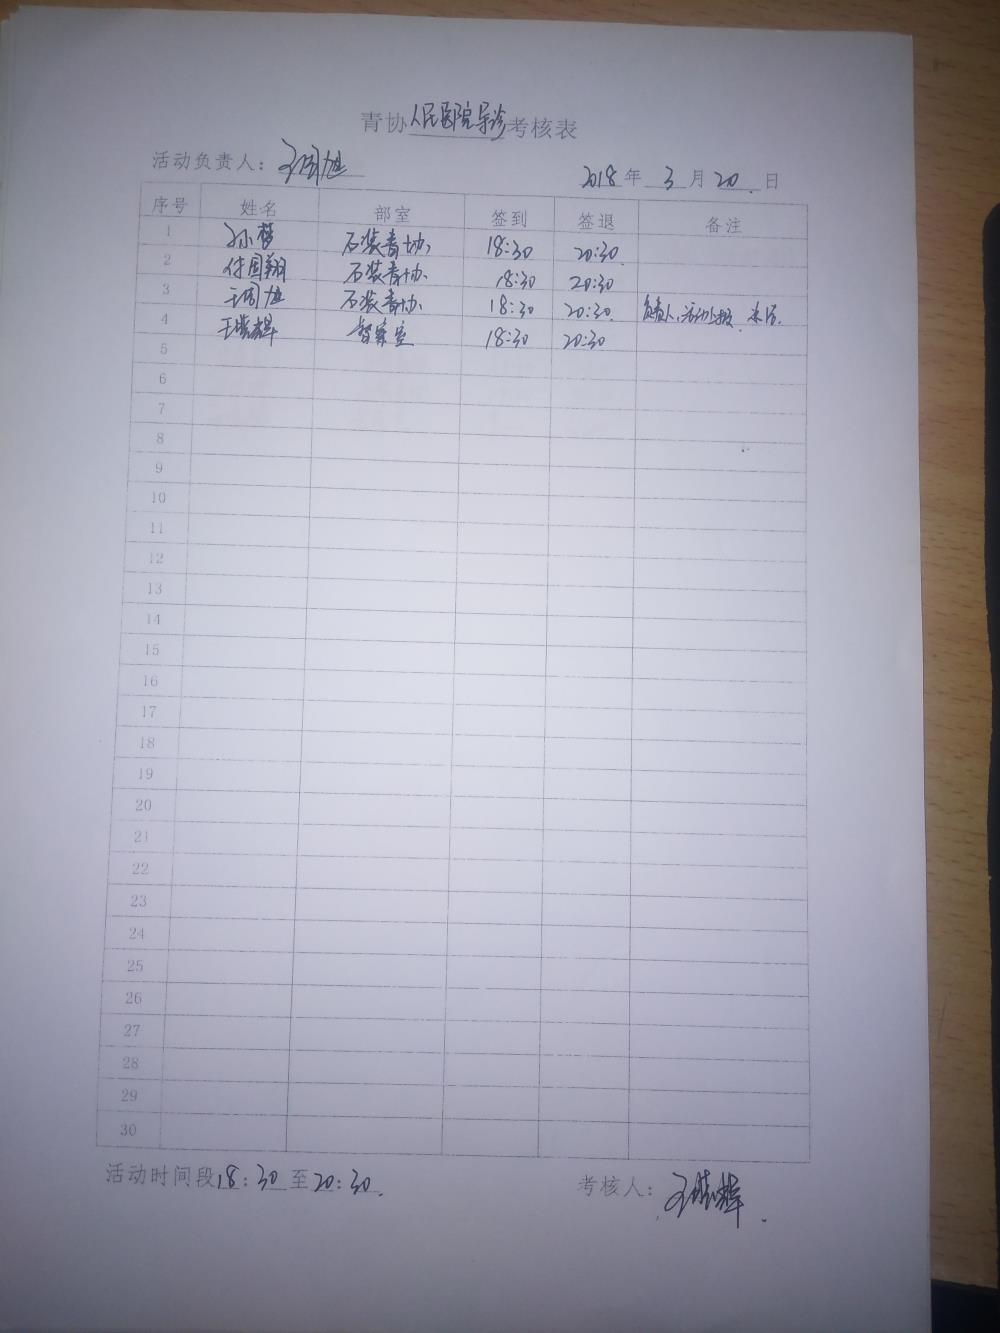 青协人民医院导诊考核表
活动负责人：王周旭
2018年3月20日
序号 姓名 部室 签到 签退 备注
1 孙梦 石装青协 18:30 20:30
2 付国翔 石装青协 18:30 20:30
3 王周旭 石装青协 18:30 20:30 负责人、活动
4 18:30 20:30
5
6
7
8
9
10
11
12
13
14
15
16
17
18
19
20
21
22
23
24
25
26
27
28
29
30
活动时间段18:30至20:30.
考核人：